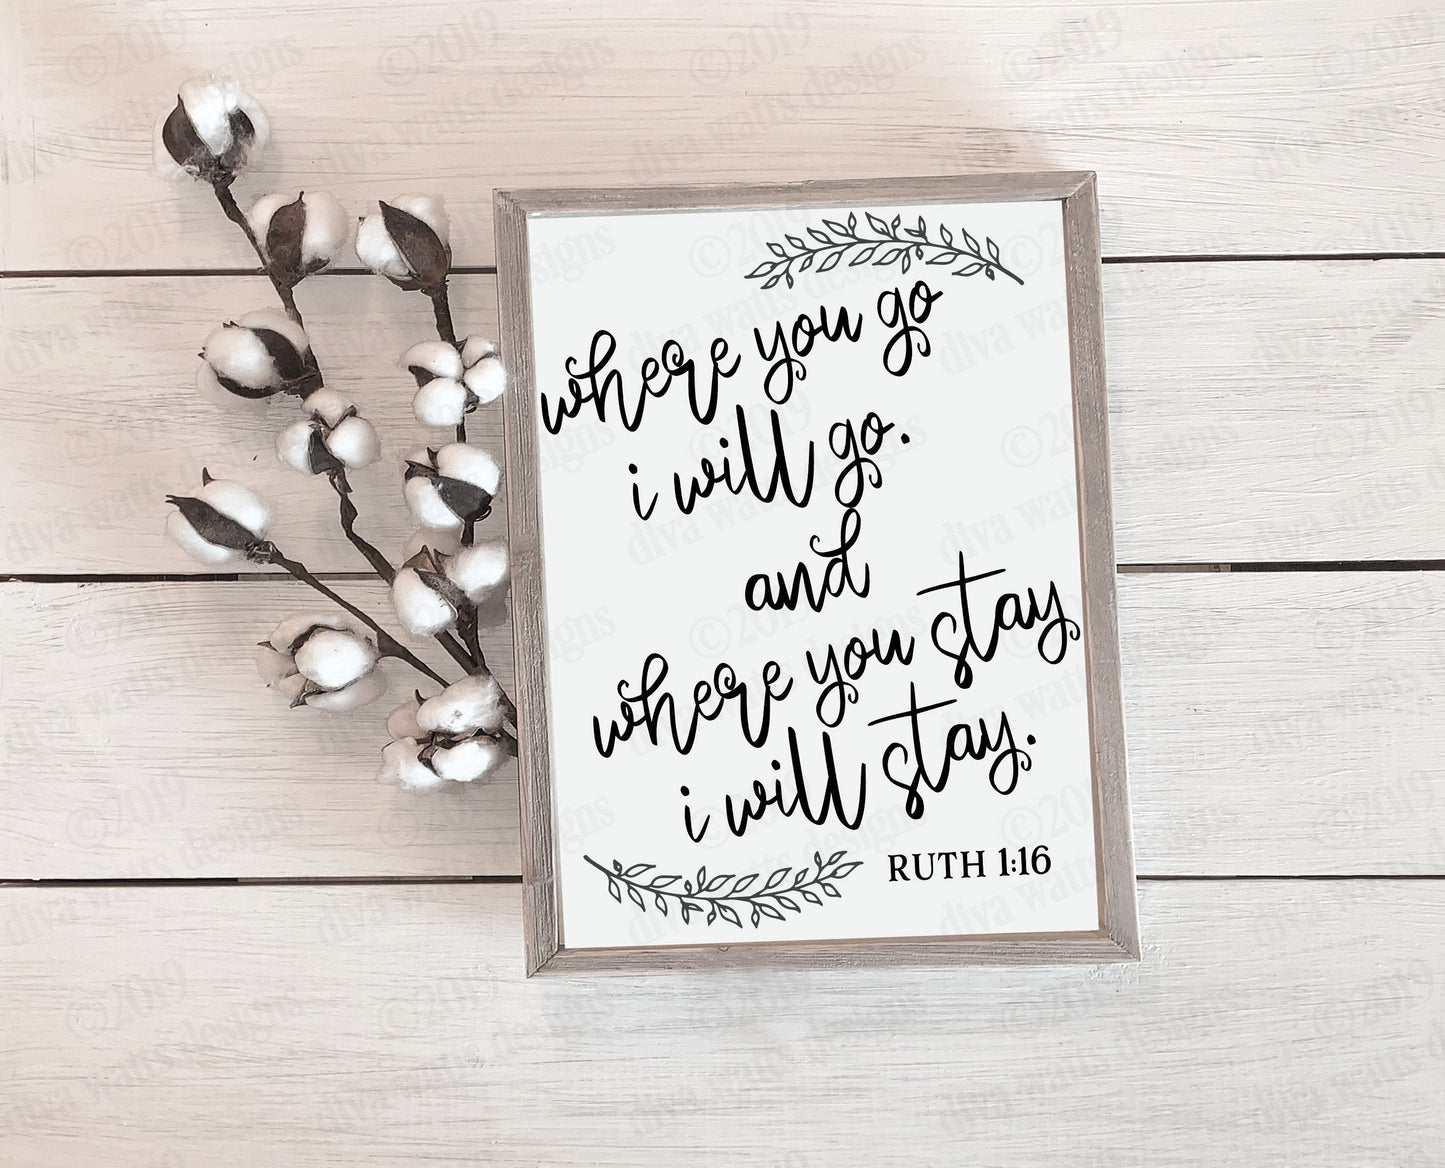 where you go
i will go.
and
where you stay
i will stay.
RUTH 1:16
©2019
diva watts designs